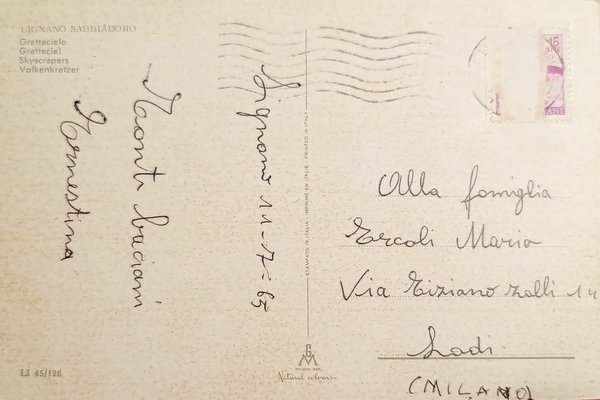 LIGNANO SABBIADORO
Grattacielo
Gratteciel
Skyscrapers
Volkenkratzer
Lignano 11-7-65
Monti baciani
Ernestina
STAMPATO IN ITALIA - IMPRIMÉ EN ITALIE - PRINTED IN ITALY
15
LIRE
ANE
Alla famiglia
Ercoli Mario
Via Tiziano Zalli 14
Lodi
(MILANO)
GM
MILANO
Natural colours
LI 45/126